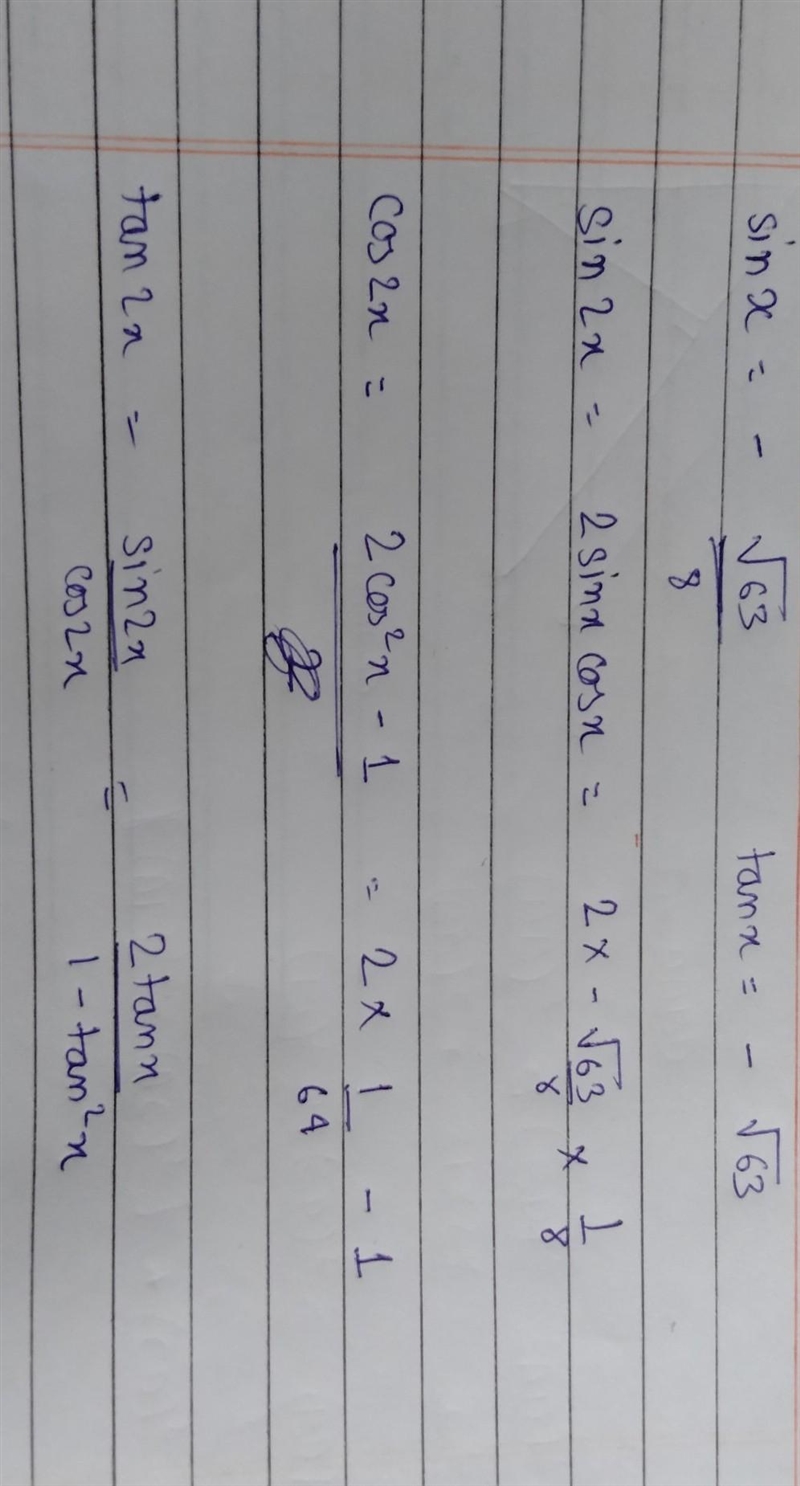 sin x = - √63/8 tan x = - √63
sin 2x = 2 sin x cos x = 2 × - √63/8 × 1/8
cos 2x = 2 cos² x - 1 = 2 × 1/64 - 1
tan 2x = sin 2x/cos 2x = 2 tan x/1 - tan² x